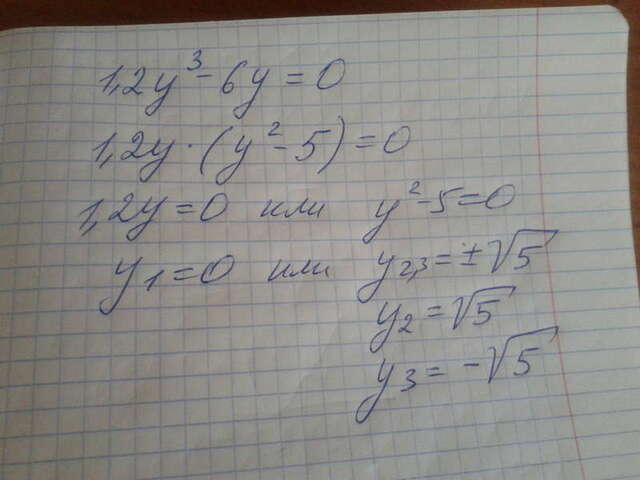 1,2y³ - 6y = 0
1,2y · (y² - 5) = 0
1,2y = 0 или y² - 5 = 0
y₁ = 0 или y₂,₃ = ±√5
y₂ = √5
y₃ = -√5